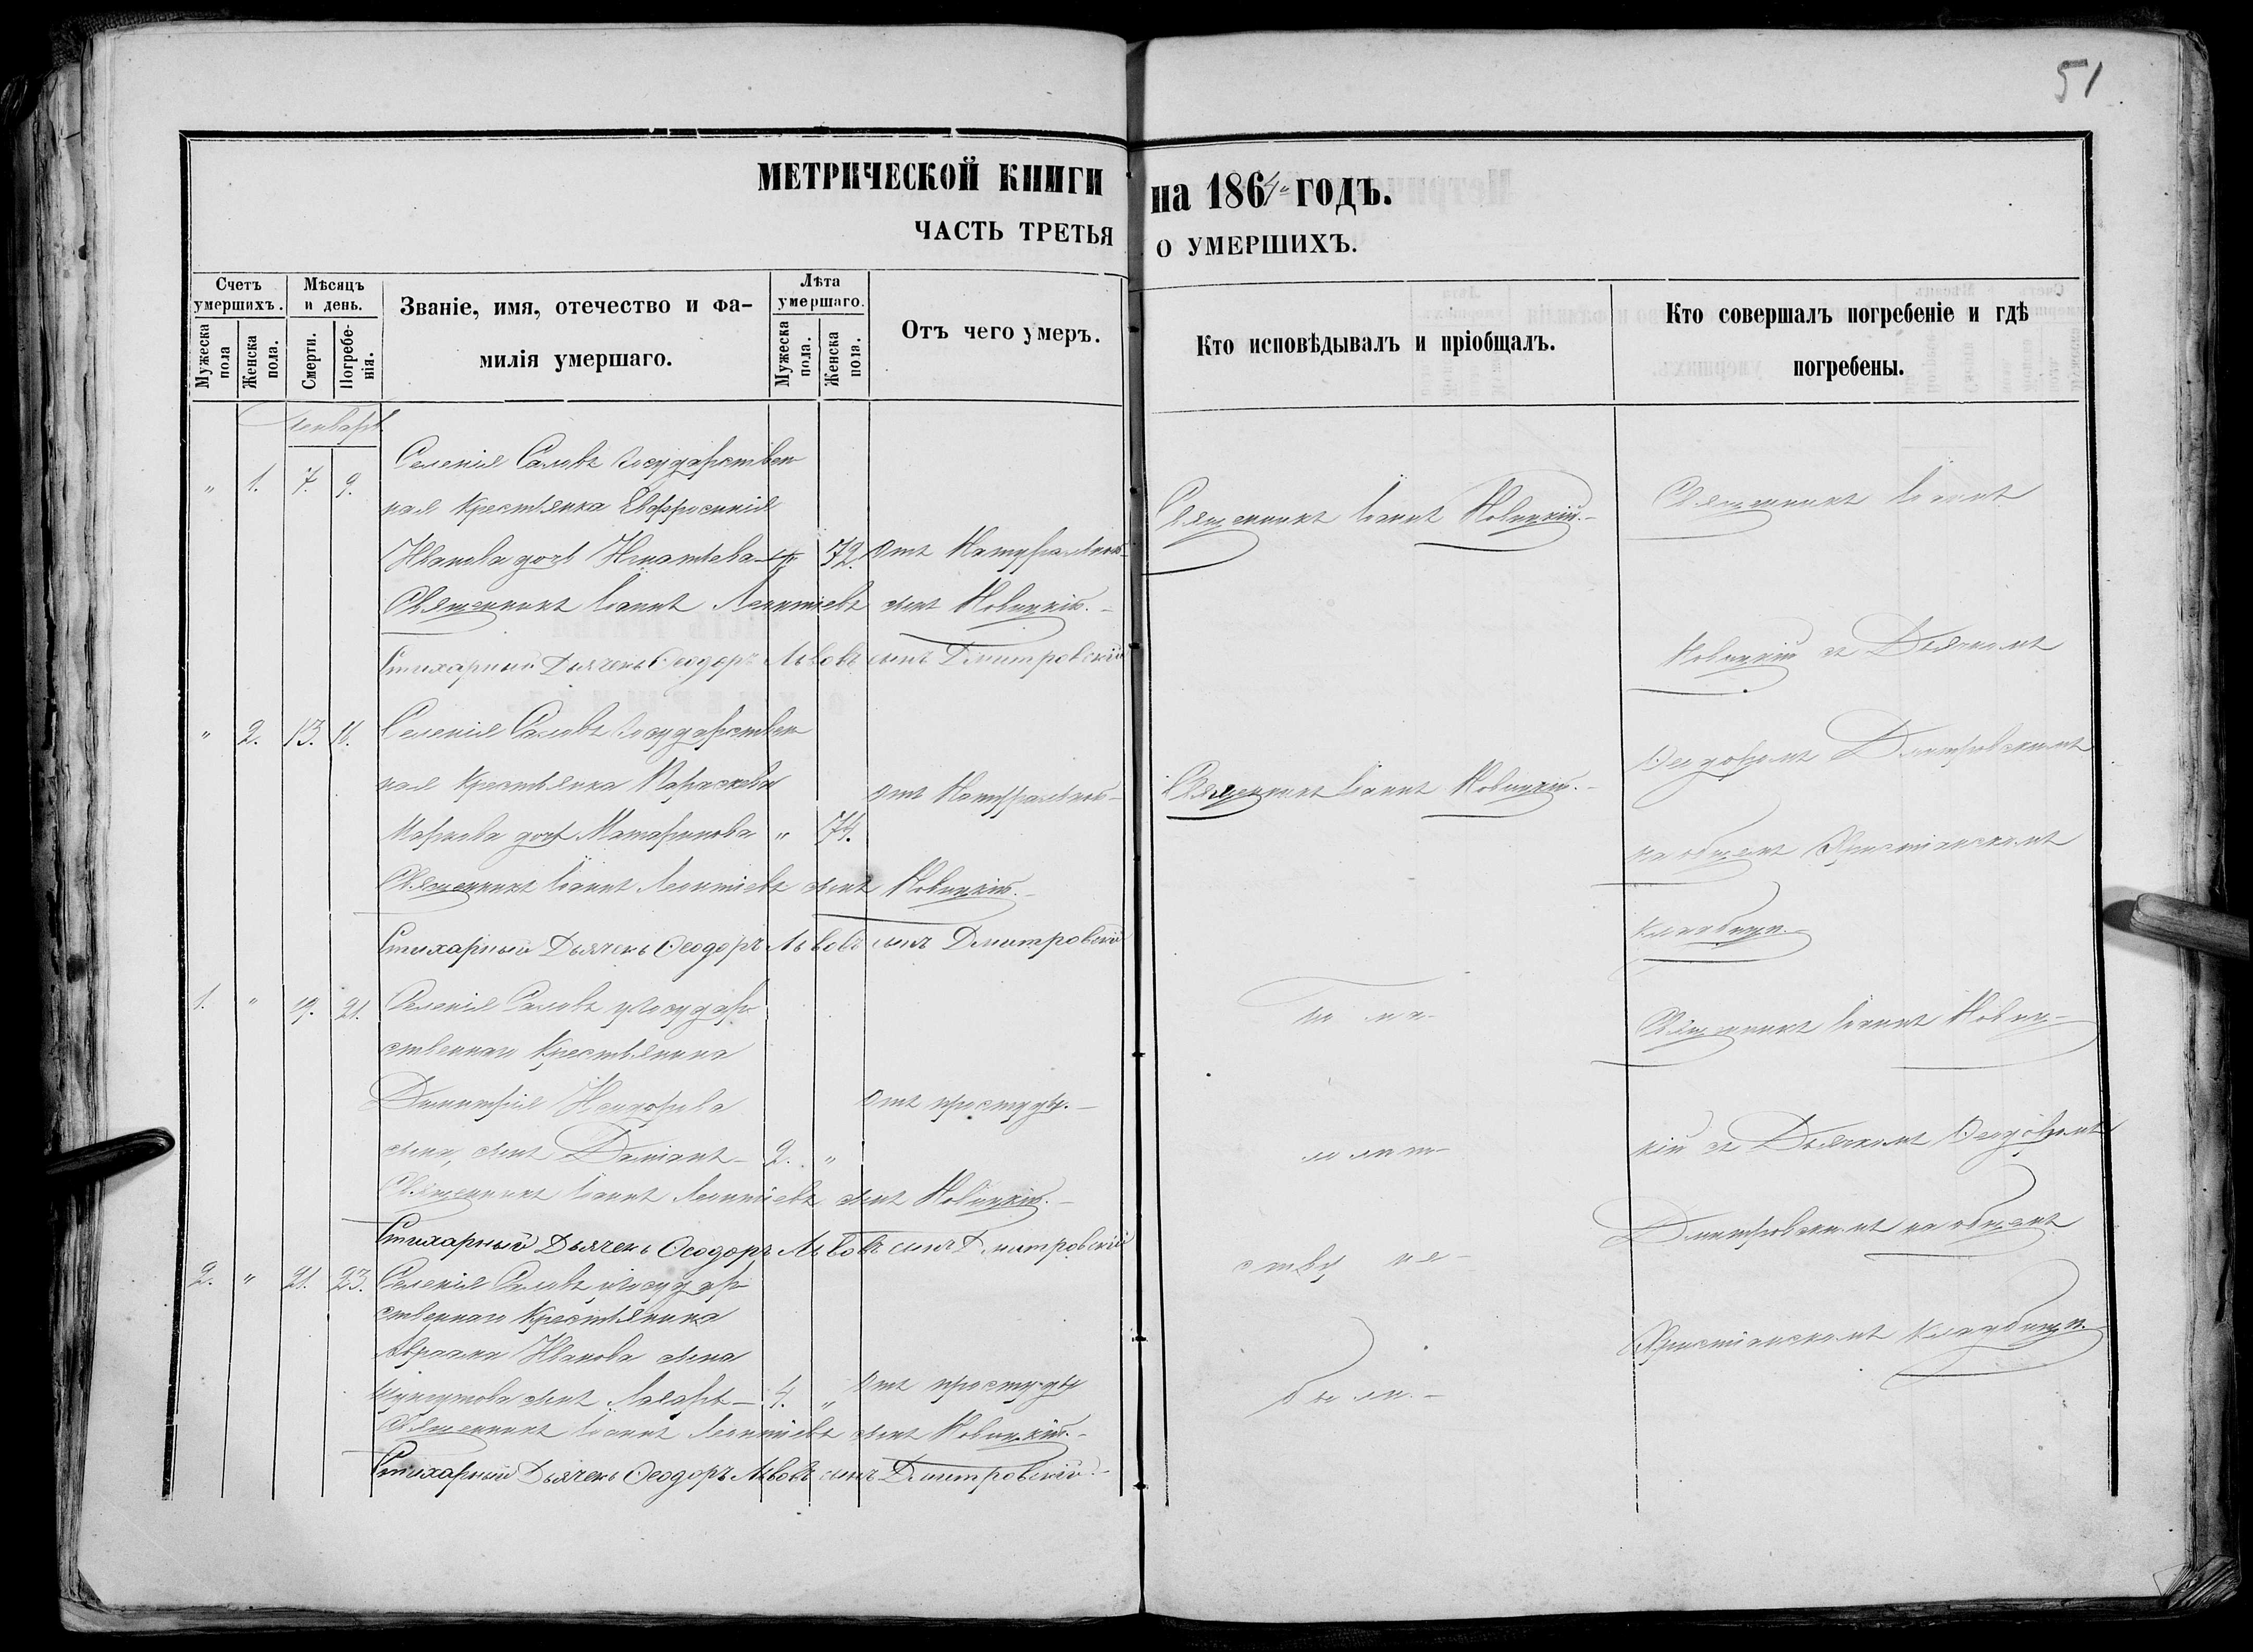 51
МЕТРИЧЕСКОЙ КНИГИ на 1864 ГОДЪ.
ЧАСТЬ ТРЕТЬЯ О УМЕРШИХЪ.
Счетъ умершихъ.
Мужеска пола
Женска пола.
Мѣсяцъ и день.
Смерти.
Погребенія.
Званіе, имя, отечество и фа-
милія умершаго.
Лѣта умершаго.
Мужеска пола.
Женска пола.
Отъ чего умеръ.
Кто исповѣдывалъ и пріобщалъ.
Кто совершалъ погребеніе и гдѣ
погребены.
Январь
" 1. 7. 9. Селенія Саловъ Государствен
ная Крестьянка Евфросинія
Иванова дочь Игнатьева 72. Отъ Натуральной
Священникъ Іоаннъ Леонтіевъ сынъ Новицкій.
Стихарный Дьячекъ Ѳеодоръ Львовъ сынъ Дмитровскій
" 2. 13. 16. Селенія Саловъ Государствен
ная Крестьянка Параскева
Отъ Натуральной
Маркова дочь " 74.
Священникъ Іоаннъ Леонтіевъ сынъ Новицкій.
Стихарный Дьячекъ Ѳеодоръ Львовъ сынъ Дмитровскій
1. " 19. 21. Селенія Саловъ Государ
ственнаго Крестьянина
Димитрія
Отъ простуды.
сына, сынъ Даміанъ 2. "
Священникъ Іоаннъ Леонтіевъ сынъ Новицкій.
Стихарный Дьячекъ Ѳеодоръ Львовъ сынъ Дмитровскій
2. " 21. 23. Селенія Саловъ Государ
ственнаго Крестьянина
Авраама Иванова сына
сынъ Лазарь 4. " Отъ простуды
Священникъ Іоаннъ Леонтіевъ сынъ Новицкій.
Стихарный Дьячекъ Ѳеодоръ Львовъ сынъ Дмитровскій.
Священникъ Іоаннъ Новицкій.
Священникъ Іоаннъ Новицкій.
По ма-
лолѣт-
ству не
были.
Священникъ Іоаннъ
Новицкій съ Дьячкомъ
Ѳеодоромъ Дмитровскимъ
на общемъ Христіанскомъ
Кладбищѣ.
Священникъ Іоаннъ Новиц-
кій съ Дьячкомъ Ѳеодоромъ
Дмитровскимъ на общемъ
Христіанскомъ Кладбищѣ.